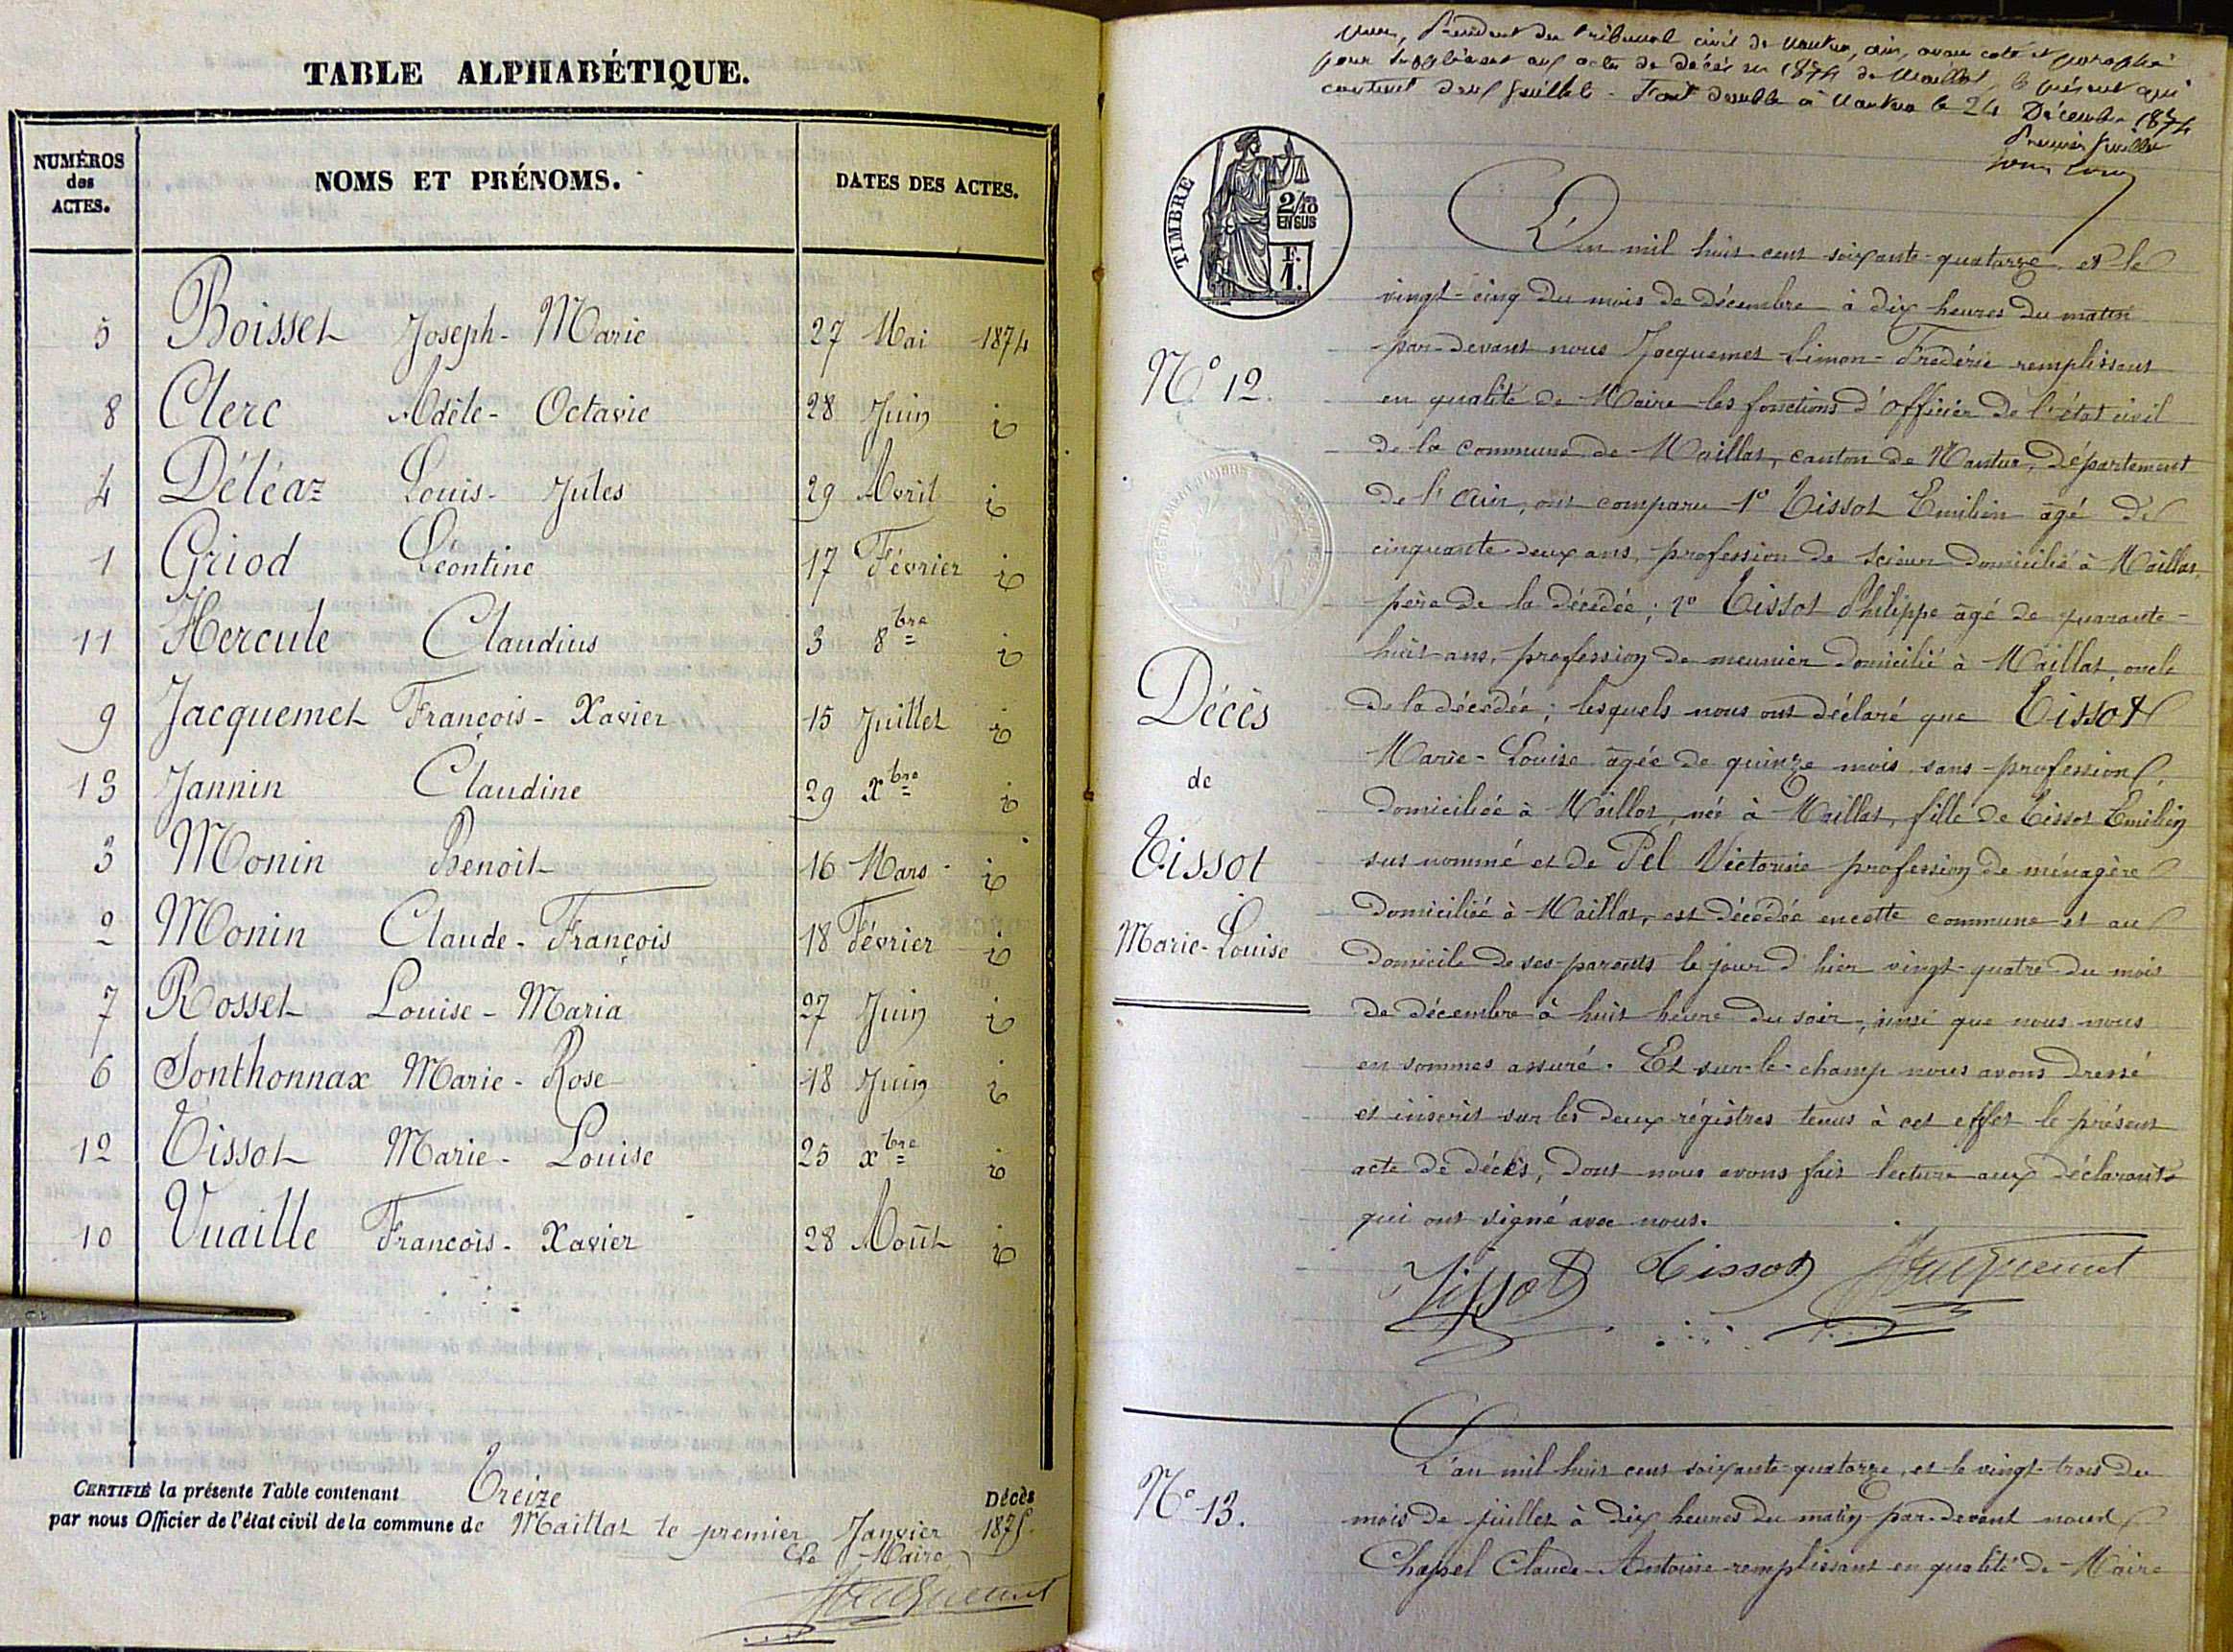 TABLE ALPHABÉTIQUE.
NUMÉROS des ACTES. NOMS ET PRÉNOMS. DATES DES ACTES.
5 Boisset Joseph-Marie 27 Mai 1874
8 Clerc Adèle-Octavie 28 Juin id
4 Déléaz Louis-Jules 29 Avril id
1 Griod Léontine 17 Février id
11 Hercule Claudius 3 8bre id
9 Jacquemet François-Xavier 15 Juillet id
13 Jannin Claudine 29 Xbre id
3 Monin Benoit 16 Mars id
2 Monin Claude-François 18 Février id
7 Rosset Louise-Maria 27 Juin id
6 Sonthonnax Marie-Rose 18 Juin id
12 Tissot Marie-Louise 25 xbre id
10 Vuaille François-Xavier 28 Août id
CERTIFIÉ la présente Table contenant Treize Décès
par nous Officier de l'état civil de la commune de Maillat le premier Janvier 1875.
Le Maire
Jacquemet
Nous, Président du Tribunal civil de Nantua, Ain, avons coté et paraphé
pour supplément aux actes de décès de 1874 de Maillat, le présent qui
contient deux feuillets. Fait double à Nantua le 24 Décembre 1874
Premier feuillet
TIMBRE
2/10 EN SUS
F. 1.
N° 12.
Décès
de
Tissot
Marie-Louise
L'an mil huit cent soixante-quatorze et le
vingt-cinq du mois de décembre à dix heures du matin
par-devant nous Jacquemet Simon-Frédéric remplissant
en qualité de Maire les fonctions d'officier de l'état civil
de la commune de Maillat, canton de Nantua, Département
de l'Ain, ont comparu 1° Tissot Emilien âgé de
cinquante-deux ans, profession de scieur domicilié à Maillat,
père de la décédée; 2° Tissot Philippe âgé de quarante-
huit ans, profession de meunier domicilié à Maillat, oncle
de la décédée; lesquels nous ont déclaré que Tissot
Marie-Louise âgée de quinze mois sans profession,
domiciliée à Maillat, née à Maillat, fille de Tissot Emilien
sus nommé et de Pel Victorine profession de ménagère
domiciliée à Maillat, est décédée en cette commune et au
domicile de ses parents le jour d'hier vingt-quatre du mois
de décembre à huit heure du soir, ainsi que nous nous
en sommes assuré. Et sur-le-champ nous avons dressé
et inscrit sur les deux régistres tenus à cet effet le présent
acte de décès, dont nous avons fait lecture aux déclarants
qui ont signé avec nous.
Tissot Tissot Jacquemet
N° 13.
L'an mil huit cent soixante-quatorze, et le vingt-trois du
mois de juillet à dix heures du matin par-devant nous
Chapel Claude-Antoine remplissant en qualité de Maire